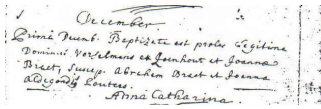 December
Primâ Decemb. Baptizata est proles Legitima
Dominici Verselmens et Joanna
Braet, Suscep. Abrahem Braet et Joanna
Aldegondis Louters.
Anna Catharina.